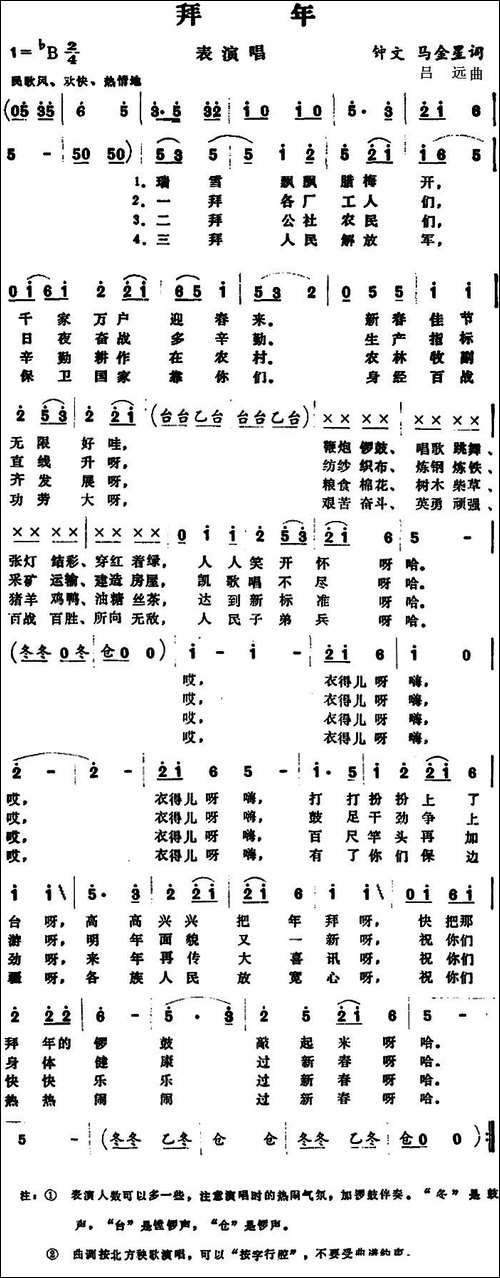 拜 年
1=♭B 2/4 表演唱 钟文 马金星词
民歌风、欢快、热情地 吕 远曲
(05 35 | 6 5 | 3·5 32 | 10 10 | 5· 3 | 21 6 |
5 - | 50 50) | 53 5 | 5 12 | 5 21 | 16 5 |
1.瑞 雪 飘飘 腊梅 开,
2.一 拜 各厂 工人 们,
3.二 拜 公社 农民 们,
4.三 拜 人民 解放 军,
016 1 | 2 21 | 165 1 | 53 2 | 05 5 | 1 1 |
千家 万户 迎春 来。 新春 佳节
日夜 奋战 多辛 勤。 生产 指标
辛勤 耕作 在农 村。 农林 牧副
保卫 国家 靠你 们。 身经 百战
2 53 | 2 21 | (台台乙台 台台乙台) | ×× ×× | ×× ×× |
无限 好哇, 鞭炮 锣鼓、唱歌 跳舞、
直线 升呀, 纺纱 织布、炼钢 炼铁、
齐发 展呀, 粮食 棉花、树木 柴草、
功劳 大呀, 艰苦 奋斗、英勇 顽强、
×× ×× | ×× ×× | 01 12 | 5 53 | 21 6 | 5 - |
张灯 结彩、穿红 着绿, 人人笑开 怀 呀哈。
采矿 运输、建造 房屋, 凯歌唱不 尽 呀哈。
猪羊 鸡鸭、油糖 丝茶, 达到新标 准 呀哈。
百战 百胜、所向 无敌, 人民子弟 兵 呀哈。
(冬冬 0冬 | 仓0 0) | 1 - | 1 - | 21 6 | 1 0 |
哎, 衣得儿呀 嗨,
哎, 衣得儿呀 嗨,
哎, 衣得儿呀 嗨,
哎, 衣得儿呀 嗨,
2 - | 2 - | 21 6 | 5 - | 1· 5 | 1 2 | 21 6 |
哎, 衣得儿呀 嗨, 打打扮扮上了
哎, 衣得儿呀 嗨, 鼓足干劲争上
哎, 衣得儿呀 嗨, 百尺竿头再加
哎, 衣得儿呀 嗨, 有了你们保边
1 1 | 5· 3 | 2 21 | 21 6 | 5 12 | 6 5 | 01 61 |
台呀, 高高兴兴 把年拜呀, 快把那
游呀, 明年面貌 又一新呀, 祝你们
劲呀, 来年再传 大喜讯呀, 祝你们
疆呀, 各族人民 放宽心呀, 祝你们
2 22 | 6 - | 5· 3 | 2 12 | 5 21 | 6 12 | 5 - |
拜年的锣 鼓 敲起来呀哈。
身体健 康 过新春呀哈。
快快乐 乐 过新春呀哈。
热热闹 闹 过新春呀哈。
5 - | (冬冬 乙冬 | 仓 仓 | 冬冬 乙冬 | 仓0 0) :‖
注:① 表演人数可以多一些,注意演唱时的热闹气氛,加锣鼓伴奏。“冬”是鼓
声,“台”是镗锣声,“仓”是锣声。
② 曲调按北方秧歌演唱,可以“按字行腔”,不要受曲谱约束。